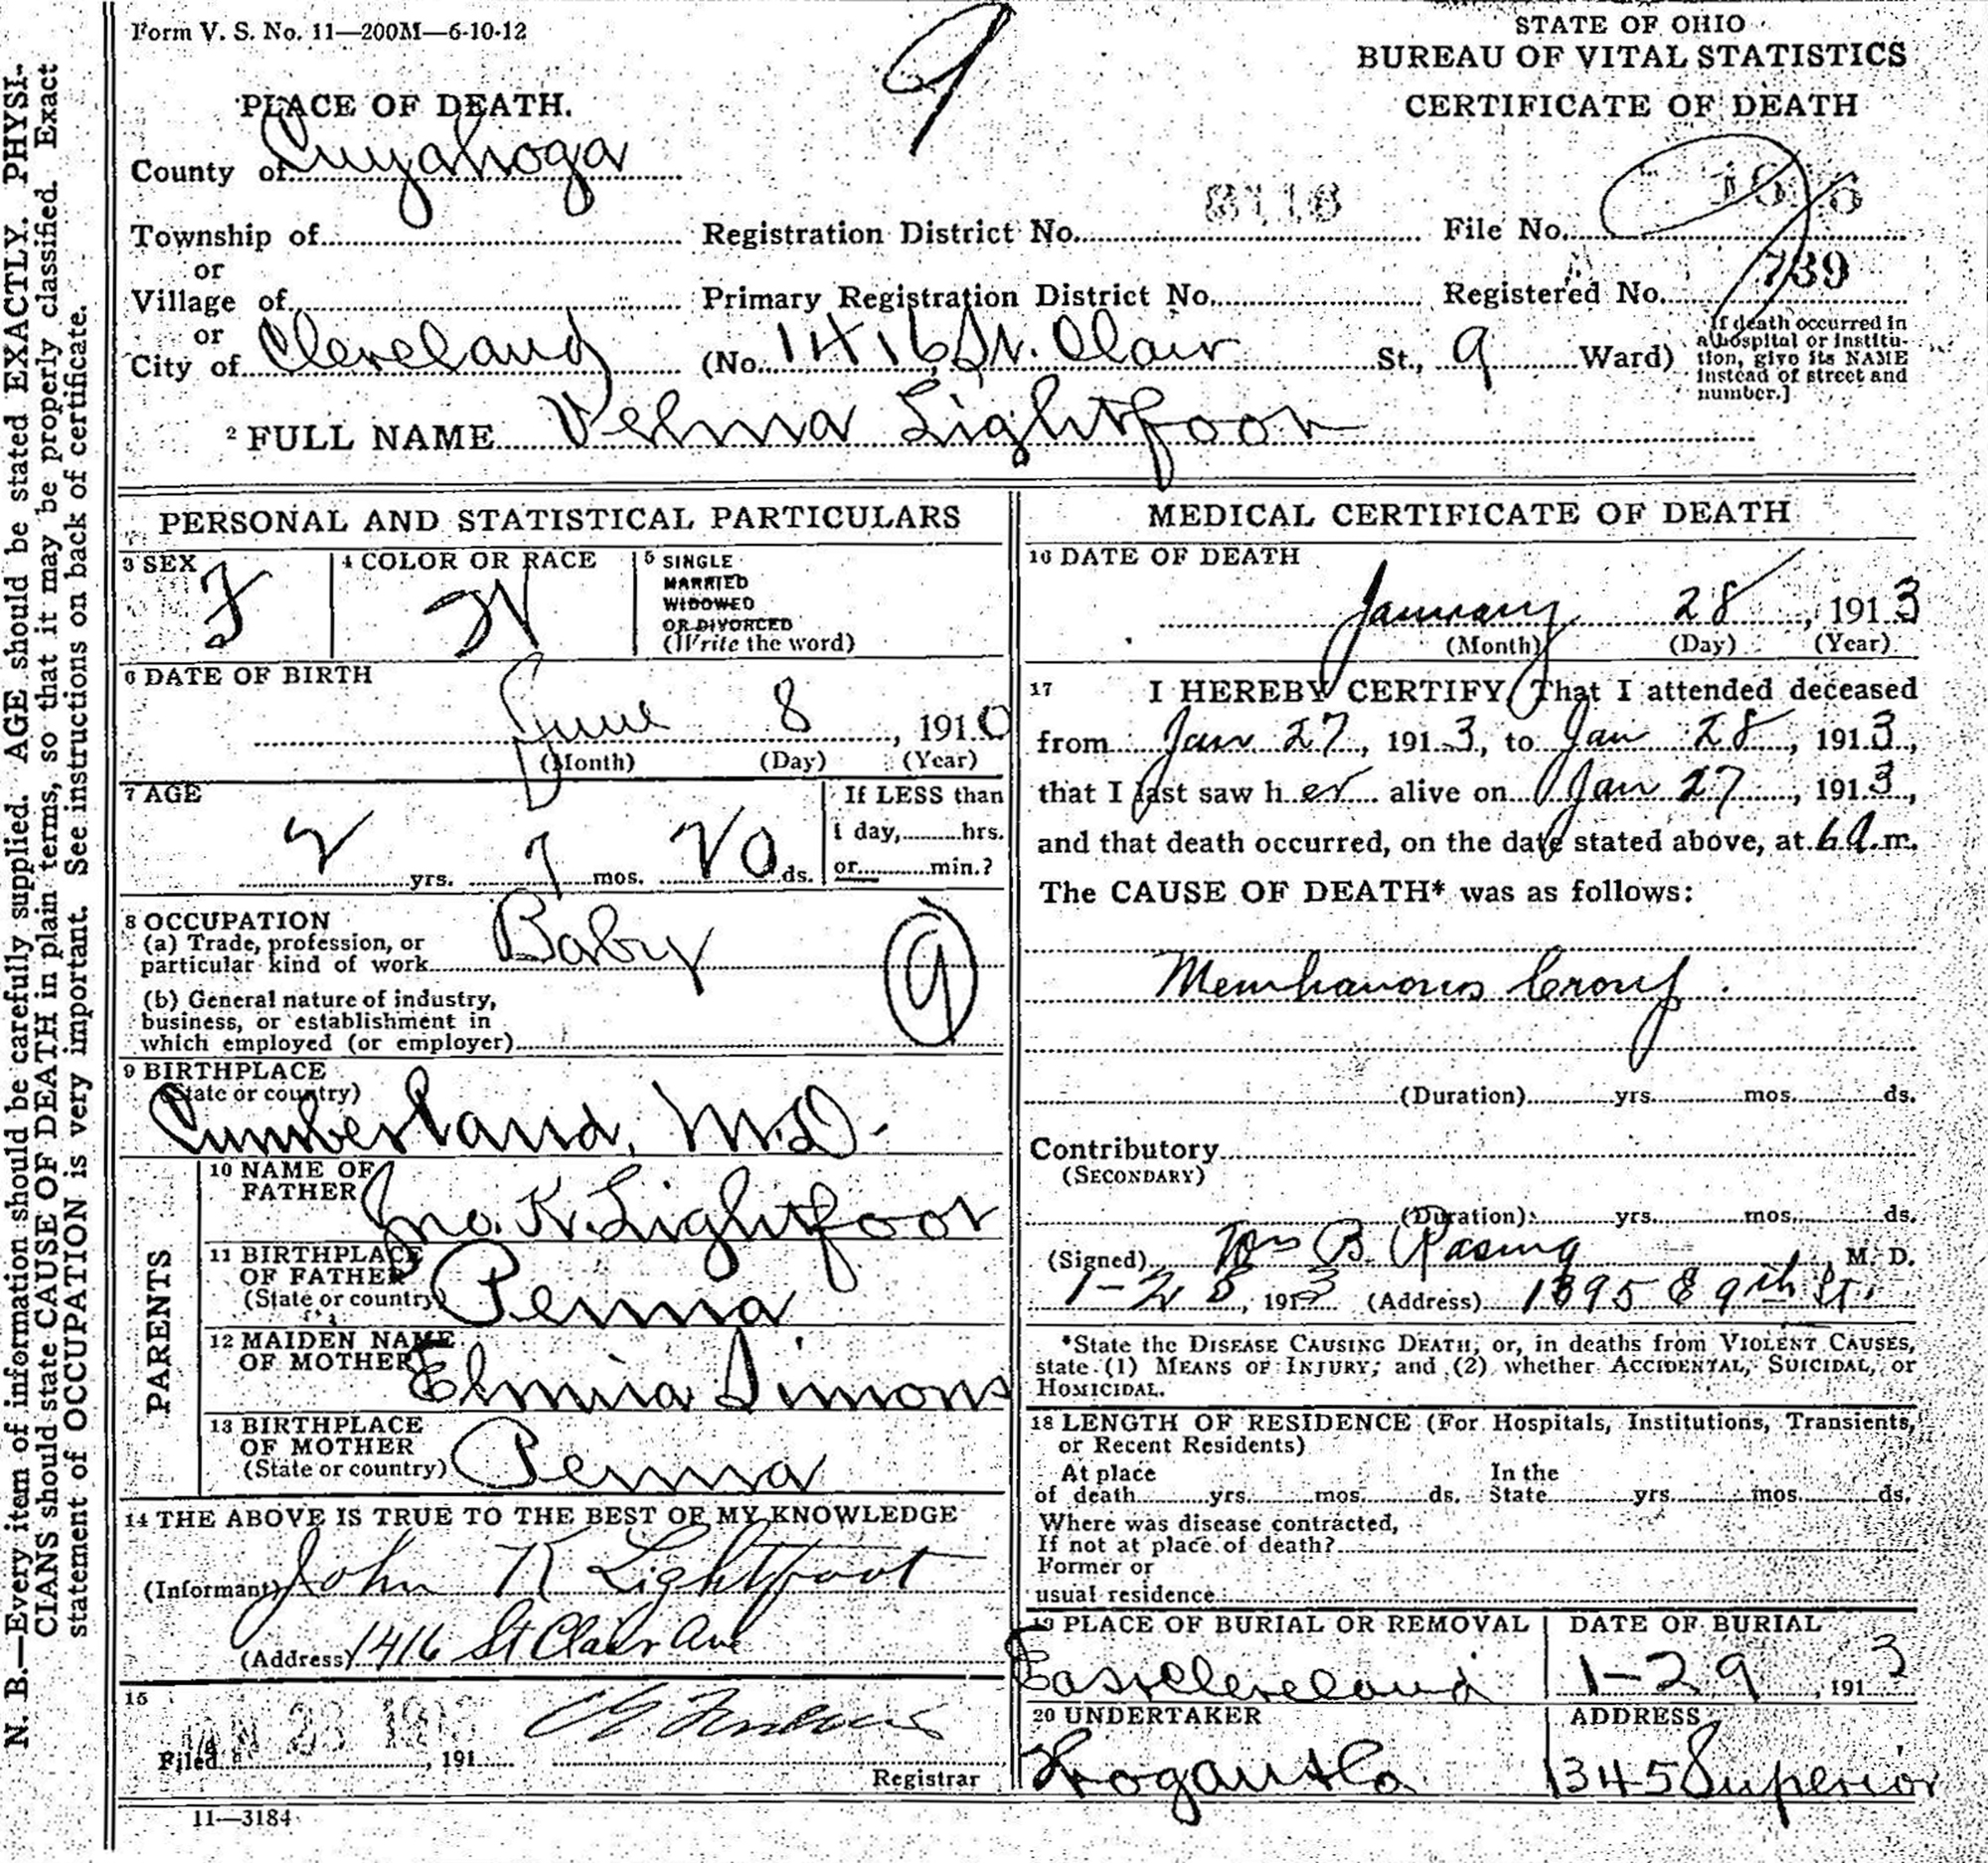 Form V. S. No. 11—200M—6-10-12
9
STATE OF OHIO
BUREAU OF VITAL STATISTICS
CERTIFICATE OF DEATH
PLACE OF DEATH.
County of Cuyahoga
Township of
or
Village of
or
City of Cleveland
Registration District No.
File No.
Primary Registration District No.
Registered No. 789
(No. 1416 St. Clair St., 9 Ward)
[If death occurred in
a hospital or institu-
tion, give its NAME
instead of street and
number.]
2 FULL NAME Velma Lightfoot
PERSONAL AND STATISTICAL PARTICULARS
3 SEX F
4 COLOR OR RACE W
5 SINGLE
MARRIED
WIDOWED
OR DIVORCED
(Write the word)
6 DATE OF BIRTH
June 8, 1910
(Month) (Day) (Year)
7 AGE
2 yrs. 7 mos. 20 ds.
If LESS than
1 day, hrs.
or min.?
8 OCCUPATION
(a) Trade, profession, or
particular kind of work Baby
9
(b) General nature of industry,
business, or establishment in
which employed (or employer)
9 BIRTHPLACE
(State or country)
Cumberland, M.D.
PARENTS
10 NAME OF
FATHER Jno. K. Lightfoot
11 BIRTHPLACE
OF FATHER
(State or country) Penna
12 MAIDEN NAME
OF MOTHER Elmira Simons
13 BIRTHPLACE
OF MOTHER
(State or country) Penna
14 THE ABOVE IS TRUE TO THE BEST OF MY KNOWLEDGE
(Informant) John K Lightfoot
(Address) 1416 St Clair Ave
15
Filed JAN 28 1913, 191
Registrar
11—3184
MEDICAL CERTIFICATE OF DEATH
16 DATE OF DEATH
January 28, 1913
(Month) (Day) (Year)
17 I HEREBY CERTIFY, That I attended deceased
from Jan 27, 1913, to Jan 28, 1913,
that I last saw her alive on Jan 27, 1913,
and that death occurred, on the date stated above, at 6 A.m.
The CAUSE OF DEATH* was as follows:
Membranous Croup.
(Duration) yrs. mos. ds.
Contributory
(SECONDARY)
(Duration) yrs. mos. ds.
(Signed) Wm B. Rasing M. D.
1-28, 1913 (Address) 1895 E 9th St.
*State the DISEASE CAUSING DEATH, or, in deaths from VIOLENT CAUSES,
state (1) MEANS OF INJURY; and (2) whether ACCIDENTAL, SUICIDAL, or
HOMICIDAL.
18 LENGTH OF RESIDENCE (For Hospitals, Institutions, Transients,
or Recent Residents)
At place
of death yrs. mos. ds.
In the
State yrs. mos. ds.
Where was disease contracted,
If not at place of death?
Former or
usual residence
19 PLACE OF BURIAL OR REMOVAL
East Cleveland
DATE OF BURIAL
1-29, 1913
20 UNDERTAKER
Hogan & Co
ADDRESS
1345 Superior
N. B.—Every item of information should be carefully supplied. AGE should be stated EXACTLY. PHYSI-
CIANS should state CAUSE OF DEATH in plain terms, so that it may be properly classified. Exact
statement of OCCUPATION is very important. See instructions on back of certificate.